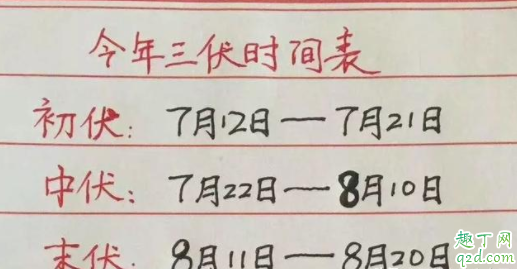 今年三伏时间表
初伏：7月12日—7月21日
中伏：7月22日—8月10日
末伏：8月11日—8月20日
趣丁网
q2d.com